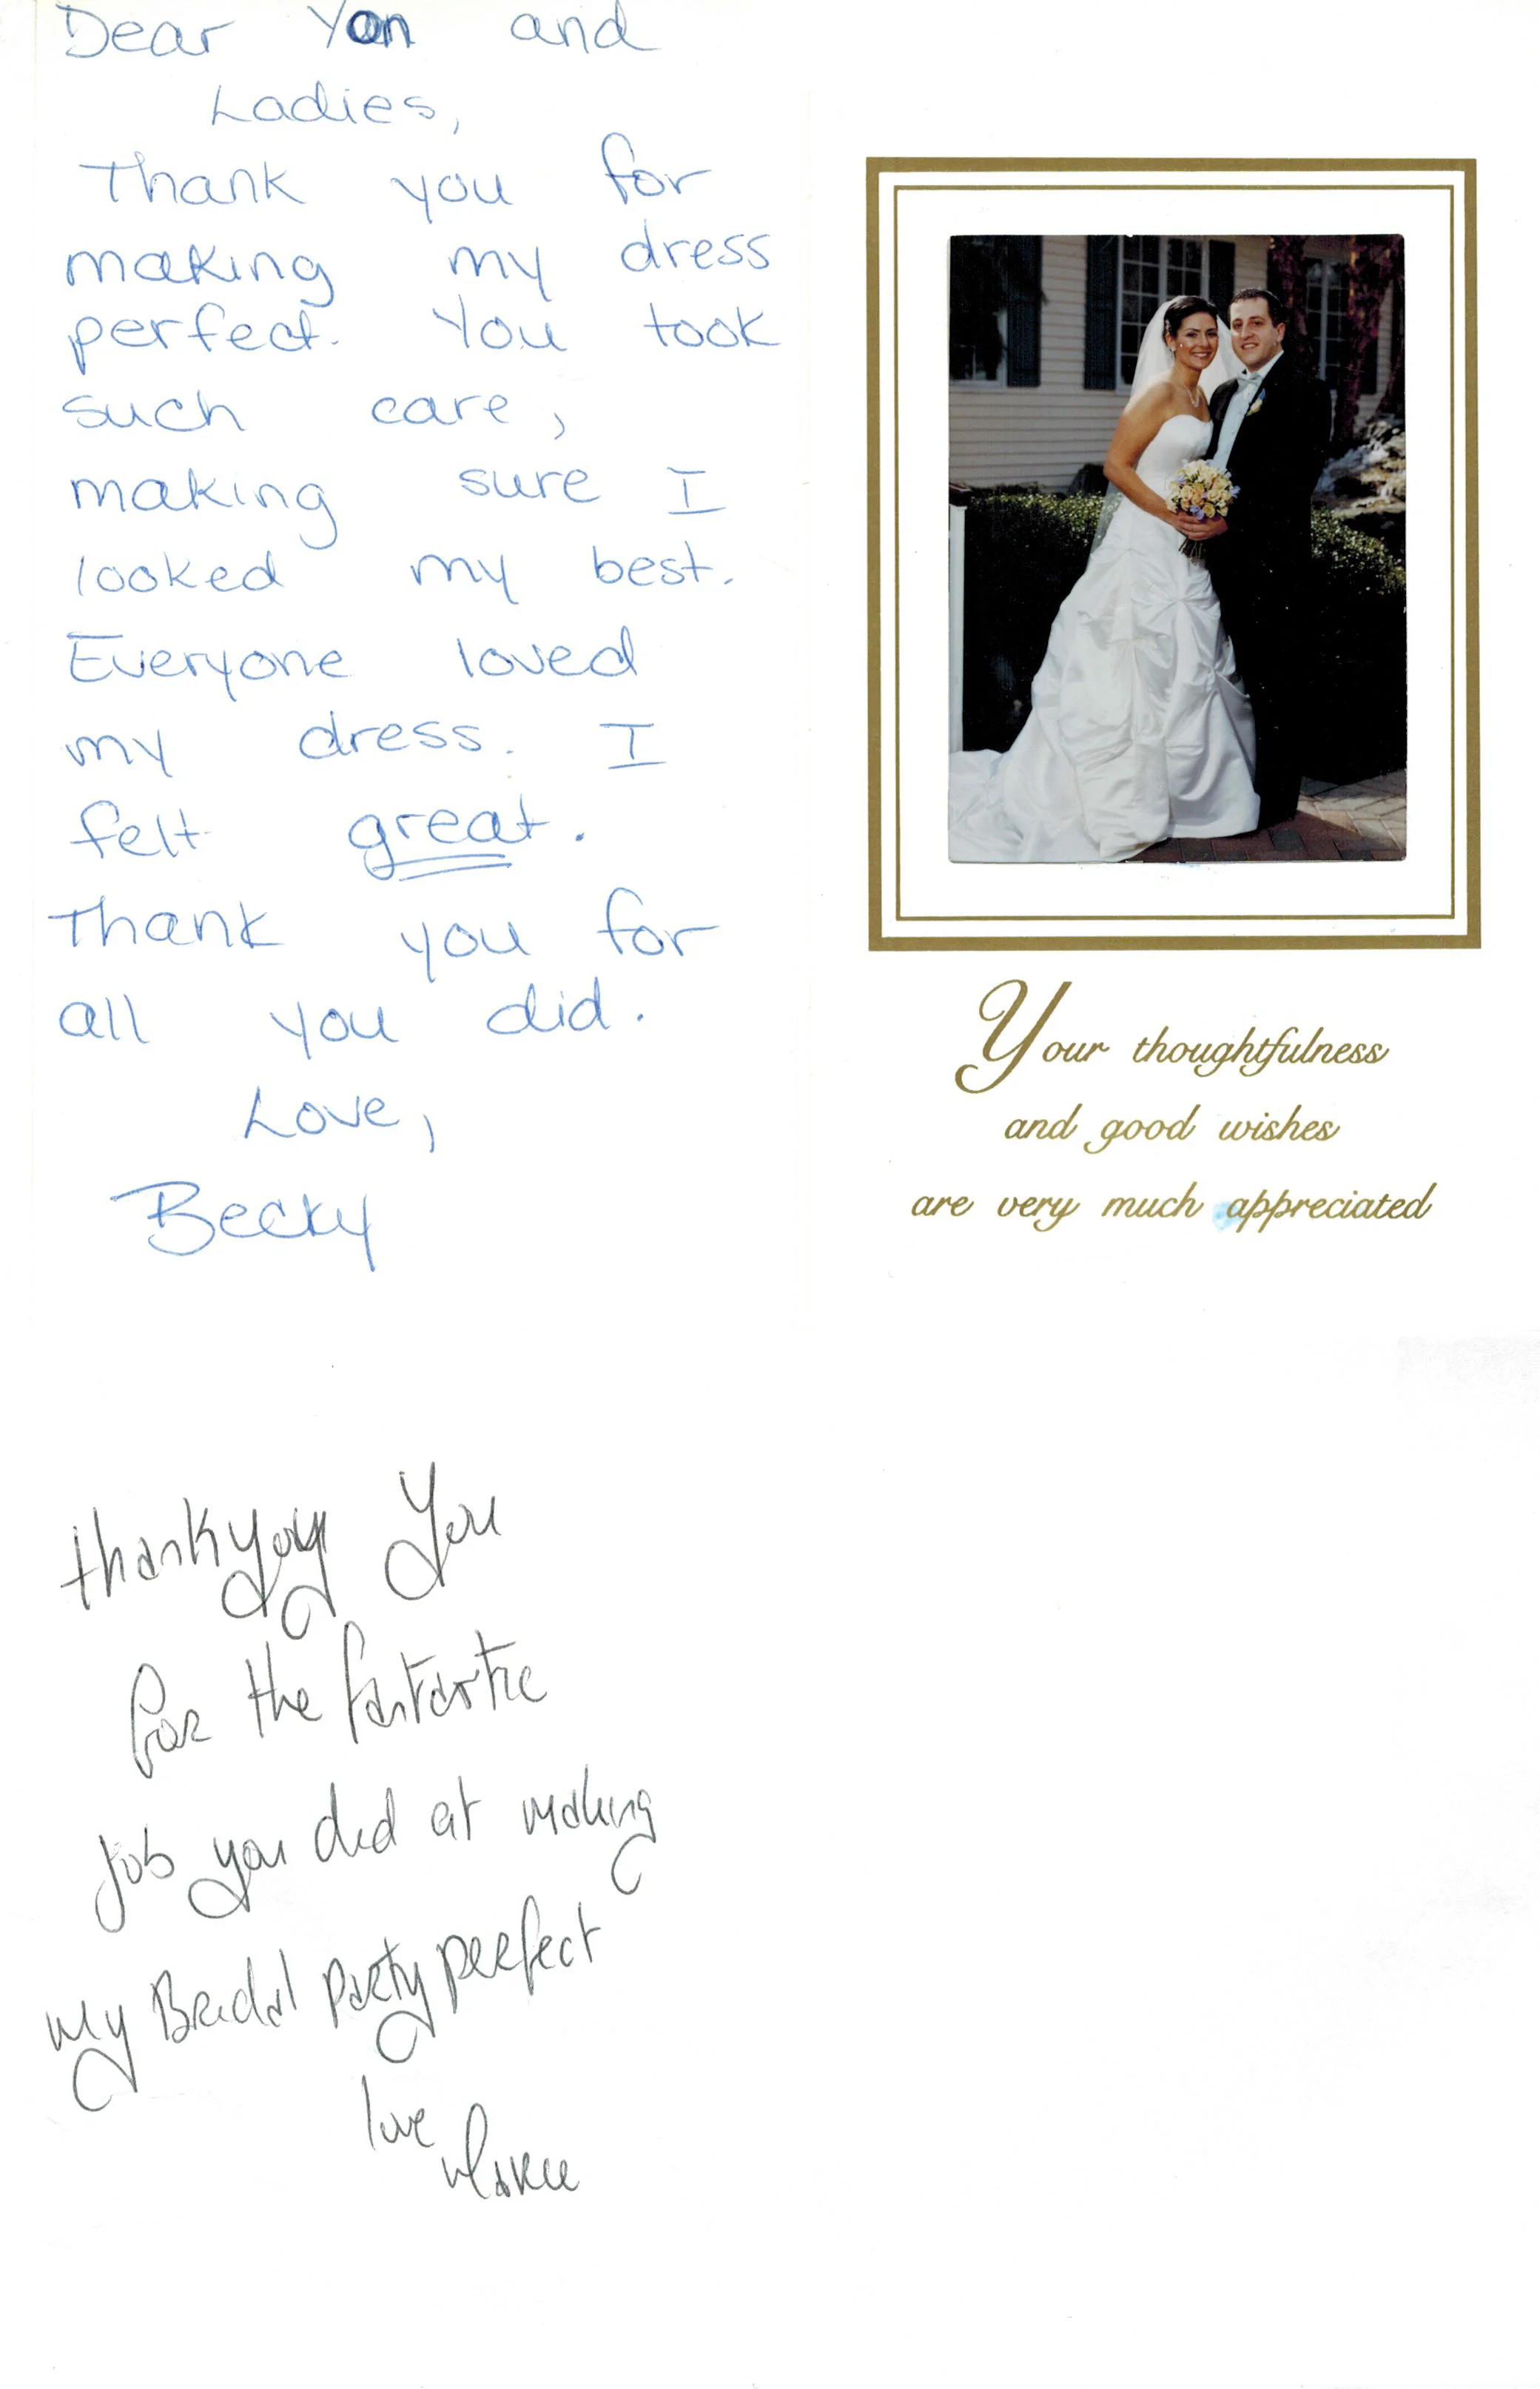 Dear Yan and
Ladies,
Thank you for
making my dress
perfect. You took
such care,
making sure I
looked my best.
Everyone loved
my dress. I
felt great.
Thank you for
all you did.
Love,
Becky
Your thoughtfulness
and good wishes
are very much appreciated
thank you You
for the fantastic
job you did at making
my Bridal party perfect
love